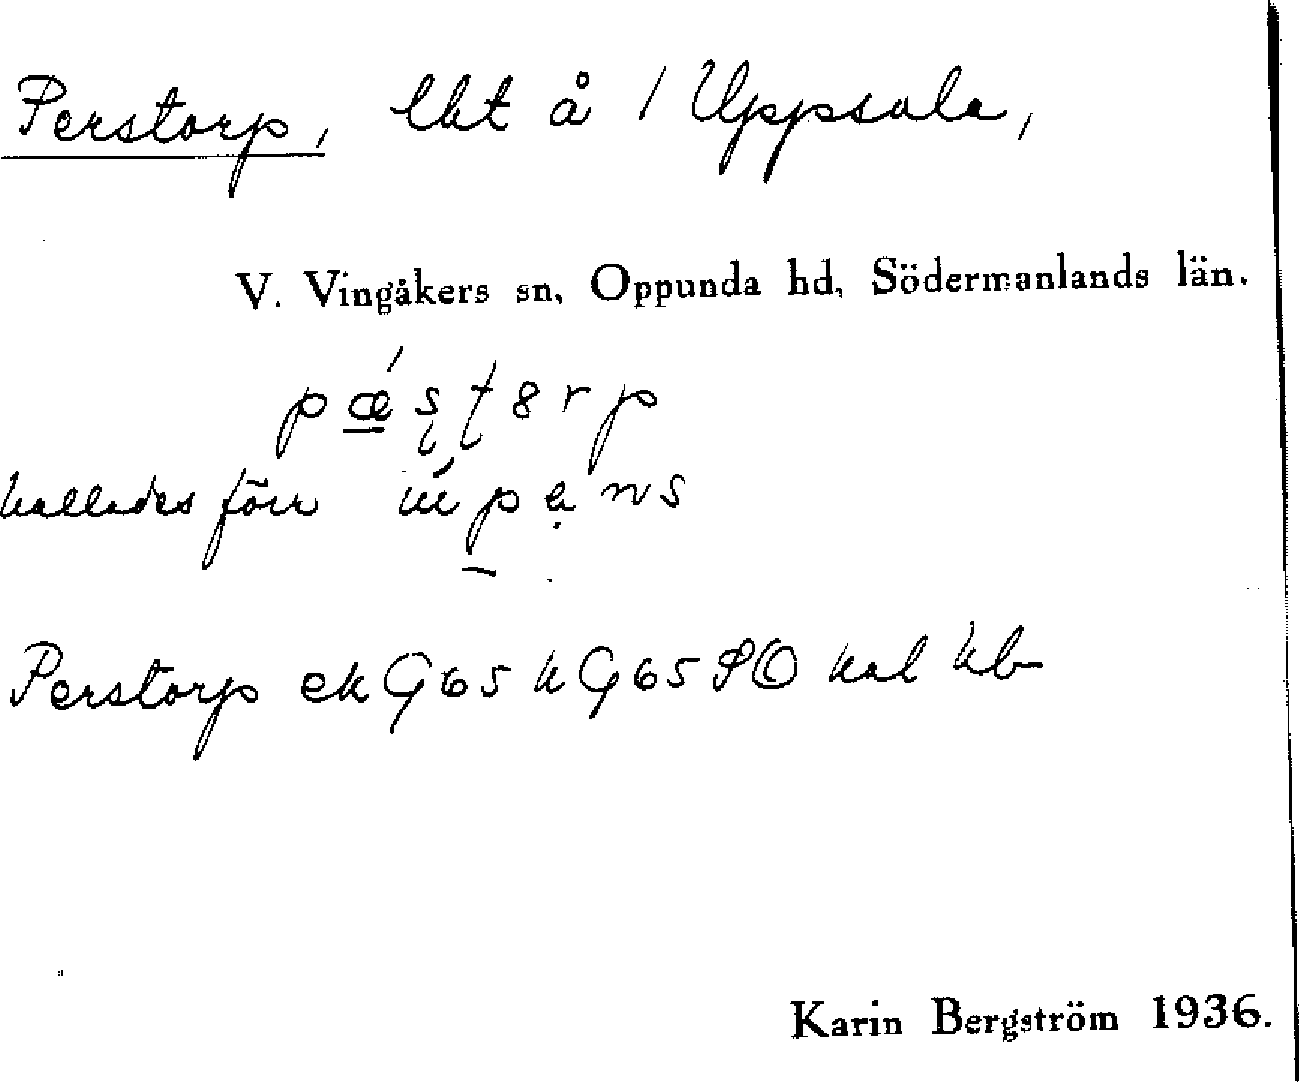 Perstorp, lht å 1 Uppsala,
V. Vingåkers sn, Oppunda hd, Södermanlands län.
kallades förr
Perstorp ek G65 k G65 PO kal kb
Karin Bergström 1936.